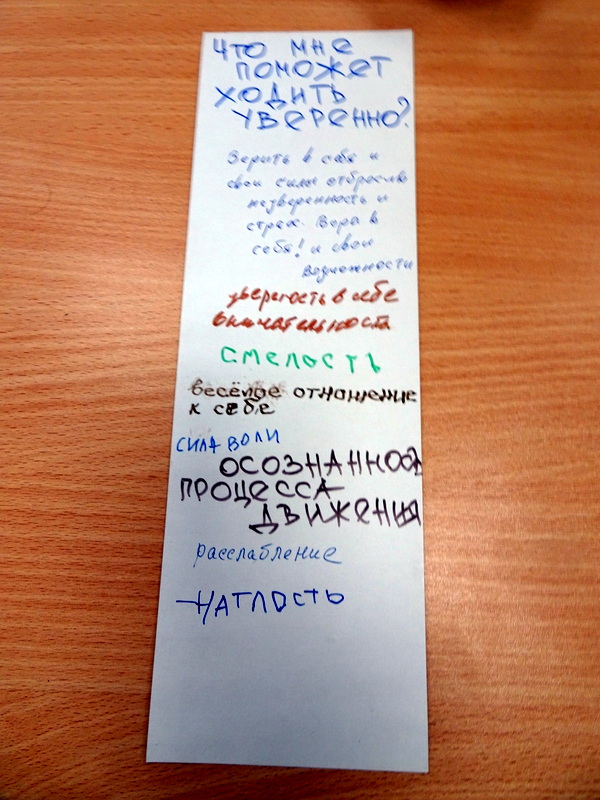 Что мне
поможет
ходить
уверенно?
Верить в себя и
свои силы отбросив
неуверенность и
страх. Вера в
себя! и свои
возможности
уверенность в себе
внимательность
смелость
весёлое отношение
к себе
сила воли
осознанность
процесса
движения
расслабление
наглость